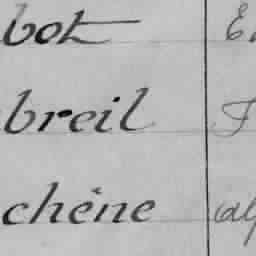 bot
breil
chêne